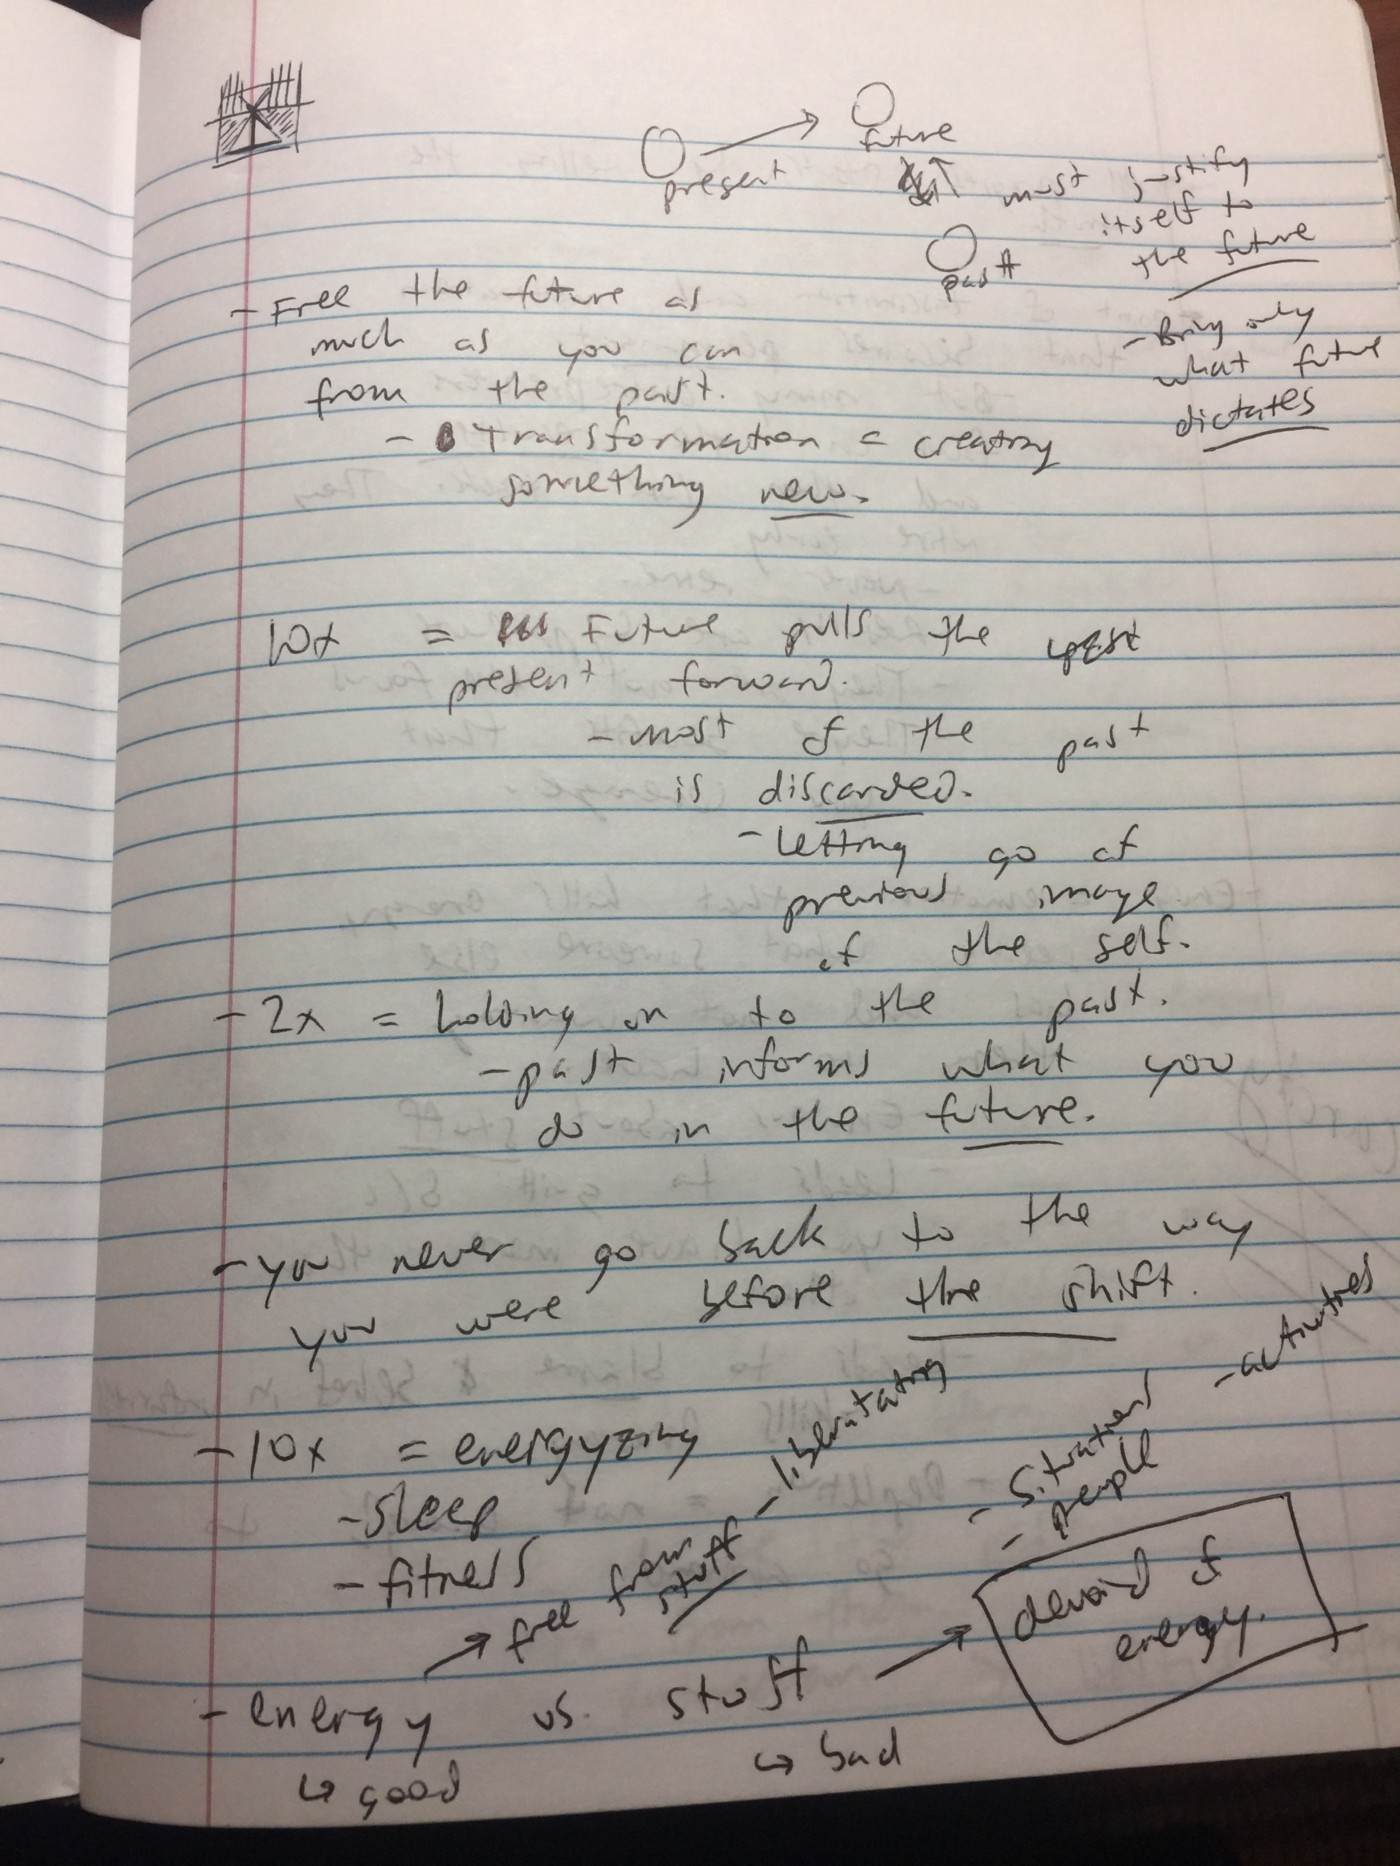 present
future
past
must justify
itself to
the future
- Bring only
what future
dictates
- Free the future as
much as you can
from the past.
- Transformation = creating
something new.
10x = Future pulls the
present forward.
- most of the past
is discarded.
- Letting go of
previous image
of the self.
- 2x = holding on to the past.
- past informs what you
do in the future.
- you never go back to the way
you were before the shift.
- 10x = energyzing
- sleep
- fitness
- energy vs. stuff
↳ good
↳ bad
→ free from
stuff
- liberatating
→ devoid of
energy.
- situations
- people
- activities